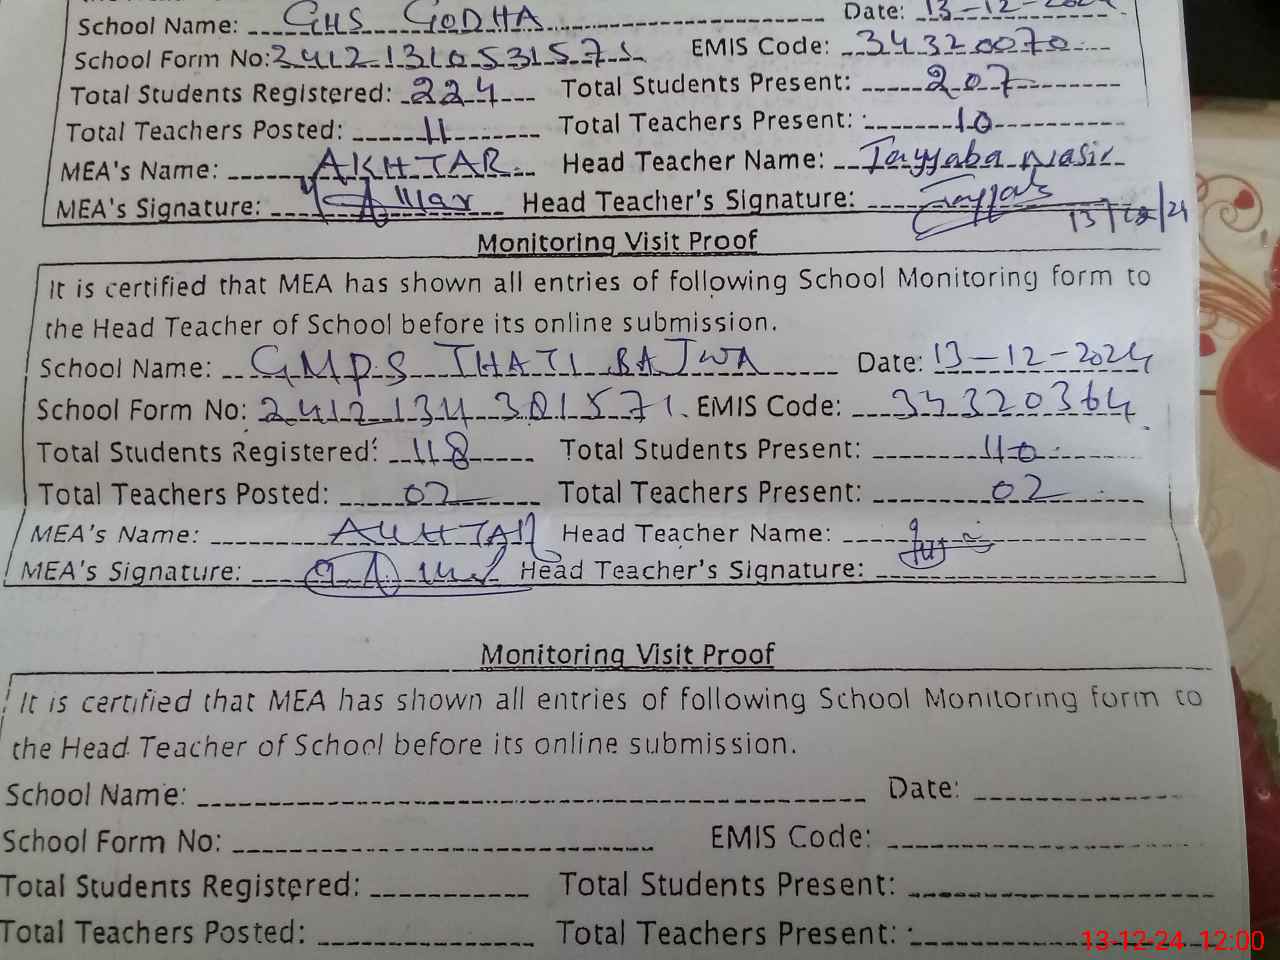 School Name: GHS GODHA Date: 13-12-2024
School Form No: 24121310531571 EMIS Code: 34320070
Total Students Registered: 224 Total Students Present: 207
Total Teachers Posted: 11 Total Teachers Present: 10
MEA's Name: AKHTAR Head Teacher Name: Tayyaba Nasir
MEA's Signature: Head Teacher's Signature:
13/12/24
Monitoring Visit Proof
It is certified that MEA has shown all entries of following School Monitoring form to
the Head Teacher of School before its online submission.
School Name: GMPS THATI BAJWA Date: 13-12-2024
School Form No: 2412134301571 EMIS Code: 34320364
Total Students Registered: 118 Total Students Present: 110
Total Teachers Posted: 02 Total Teachers Present: 02
MEA's Name: AKHTAR Head Teacher Name:
MEA's Signature: Head Teacher's Signature:
Monitoring Visit Proof
It is certified that MEA has shown all entries of following School Monitoring form to
the Head Teacher of School before its online submission.
School Name: Date:
School Form No: EMIS Code:
Total Students Registered: Total Students Present:
Total Teachers Posted: Total Teachers Present:
13-12-24 12:00